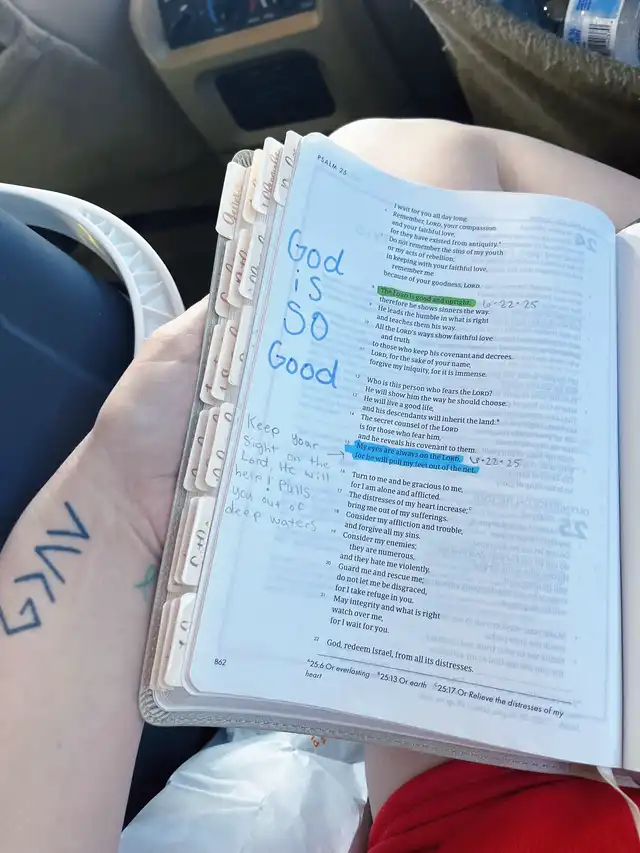 PSALM 25
I wait for you all day long.
6 Remember, LORD, your compassion
and your faithful love,
for they have existed from antiquity.ᴬ
7 Do not remember the sins of my youth
or my acts of rebellion;
in keeping with your faithful love,
remember me
because of your goodness, LORD.
8 The LORD is good and upright; 6·22·25
therefore he shows sinners the way.
9 He leads the humble in what is right
and teaches them his way.
10 All the LORD's ways show faithful love
and truth
to those who keep his covenant and decrees.
11 LORD, for the sake of your name,
forgive my iniquity, for it is immense.
12 Who is this person who fears the LORD?
He will show him the way he should choose.
13 He will live a good life,
and his descendants will inherit the land.ᴮ
14 The secret counsel of the LORD
is for those who fear him,
and he reveals his covenant to them.
15 My eyes are always on the LORD, 6·22·25
for he will pull my feet out of the net.
16 Turn to me and be gracious to me,
for I am alone and afflicted.
17 The distresses of my heart increase;ᶜ
bring me out of my sufferings.
18 Consider my affliction and trouble,
and forgive all my sins.
19 Consider my enemies;
they are numerous,
and they hate me violently.
20 Guard me and rescue me;
do not let me be disgraced,
for I take refuge in you.
21 May integrity and what is right
watch over me,
for I wait for you.
22 God, redeem Israel, from all its distresses.
862
ᴬ25:6 Or everlasting ᴮ25:13 Or earth ᶜ25:17 Or Relieve the distresses of my
heart
God
is
SO
Good
Keep your
Sight on the
Lord, He will
help! Pulls
you out of
deep waters
G>ΛV